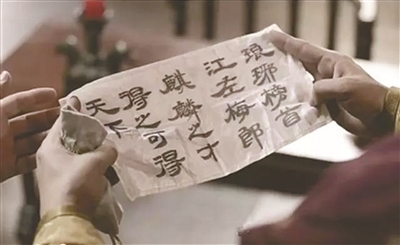 琅琊榜首
江左梅郎
麒麟之才
得之可得
天下